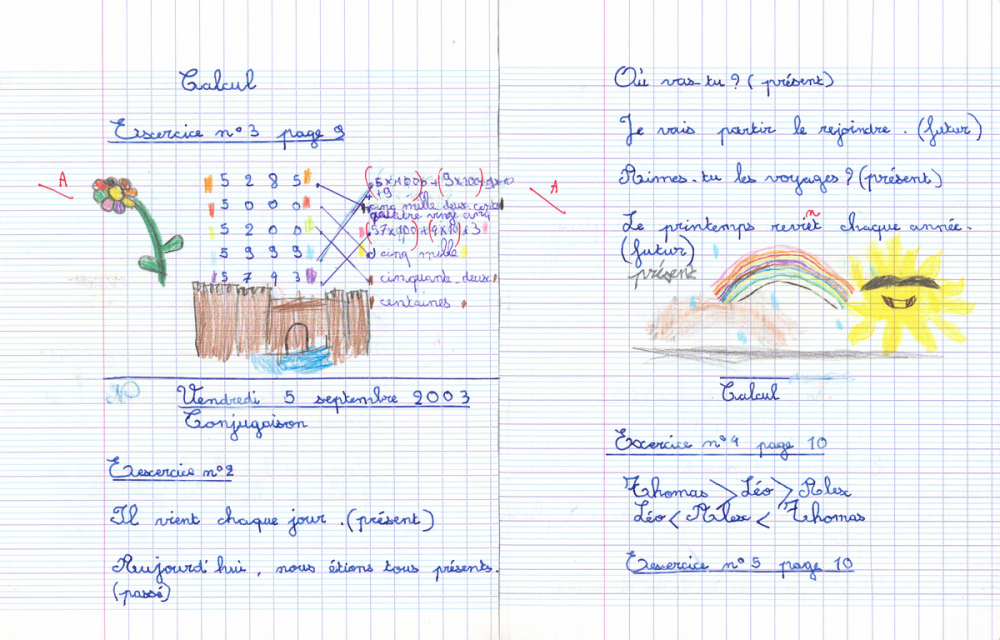 Calcul
Exercice n°3 page 9
A
5 2 8 5
5 0 0 0
5 2 0 0
5 9 9 9
5 7 9 3
(5 x 1000) + (9 x 100)
cinq mille deux cent
quatre vingt cinq
(57 x 100) + (9 x 10) + 3
cinq mille
cinquante-deux
centaines
Vendredi 5 septembre 2003
Conjugaison
Exercice n°2
Il vient chaque jour. (présent)
Aujourd'hui, nous étions tous présents.
(passé)
Où vas-tu ? (présent)
Je vais partir le rejoindre. (futur)
A
Aimes-tu les voyages ? (présent)
n
Le printemps reviet chaque année.
(futur)
présent
Calcul
Exercice n°4 page 10
Thomas > Léo > Alex
Léo < Alex < Thomas
Exercice n°5 page 10